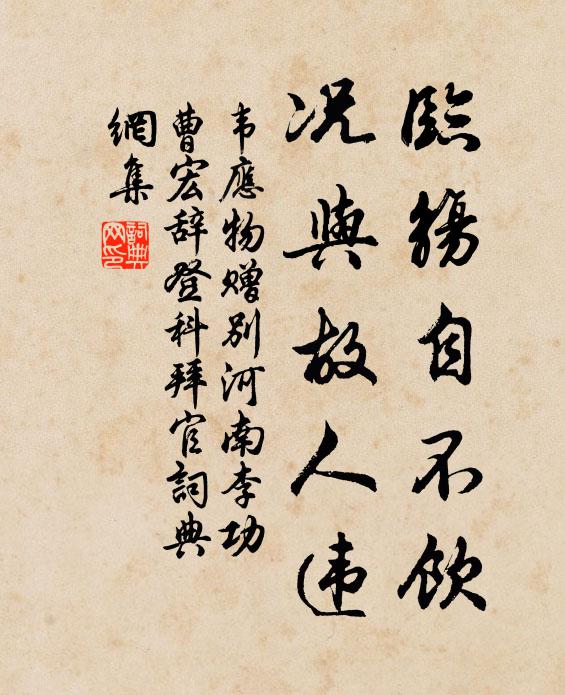 臨觴自不飲
况與故人违
韦應物贈别河南李功
曹宏辞登科拜官詞典
網集
詞典网印